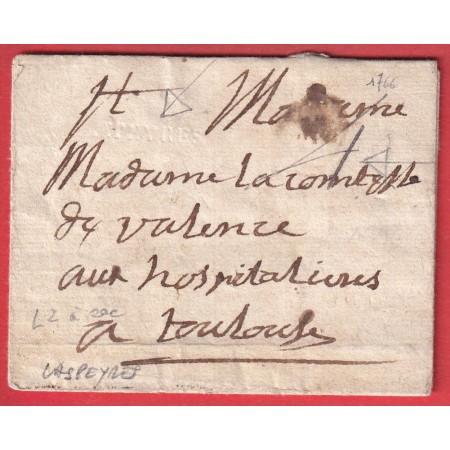 1766
Madame
Madame La comtesse
de valence
aux hospitalieres
a toulouse
L2 à sec
LASPEYRES